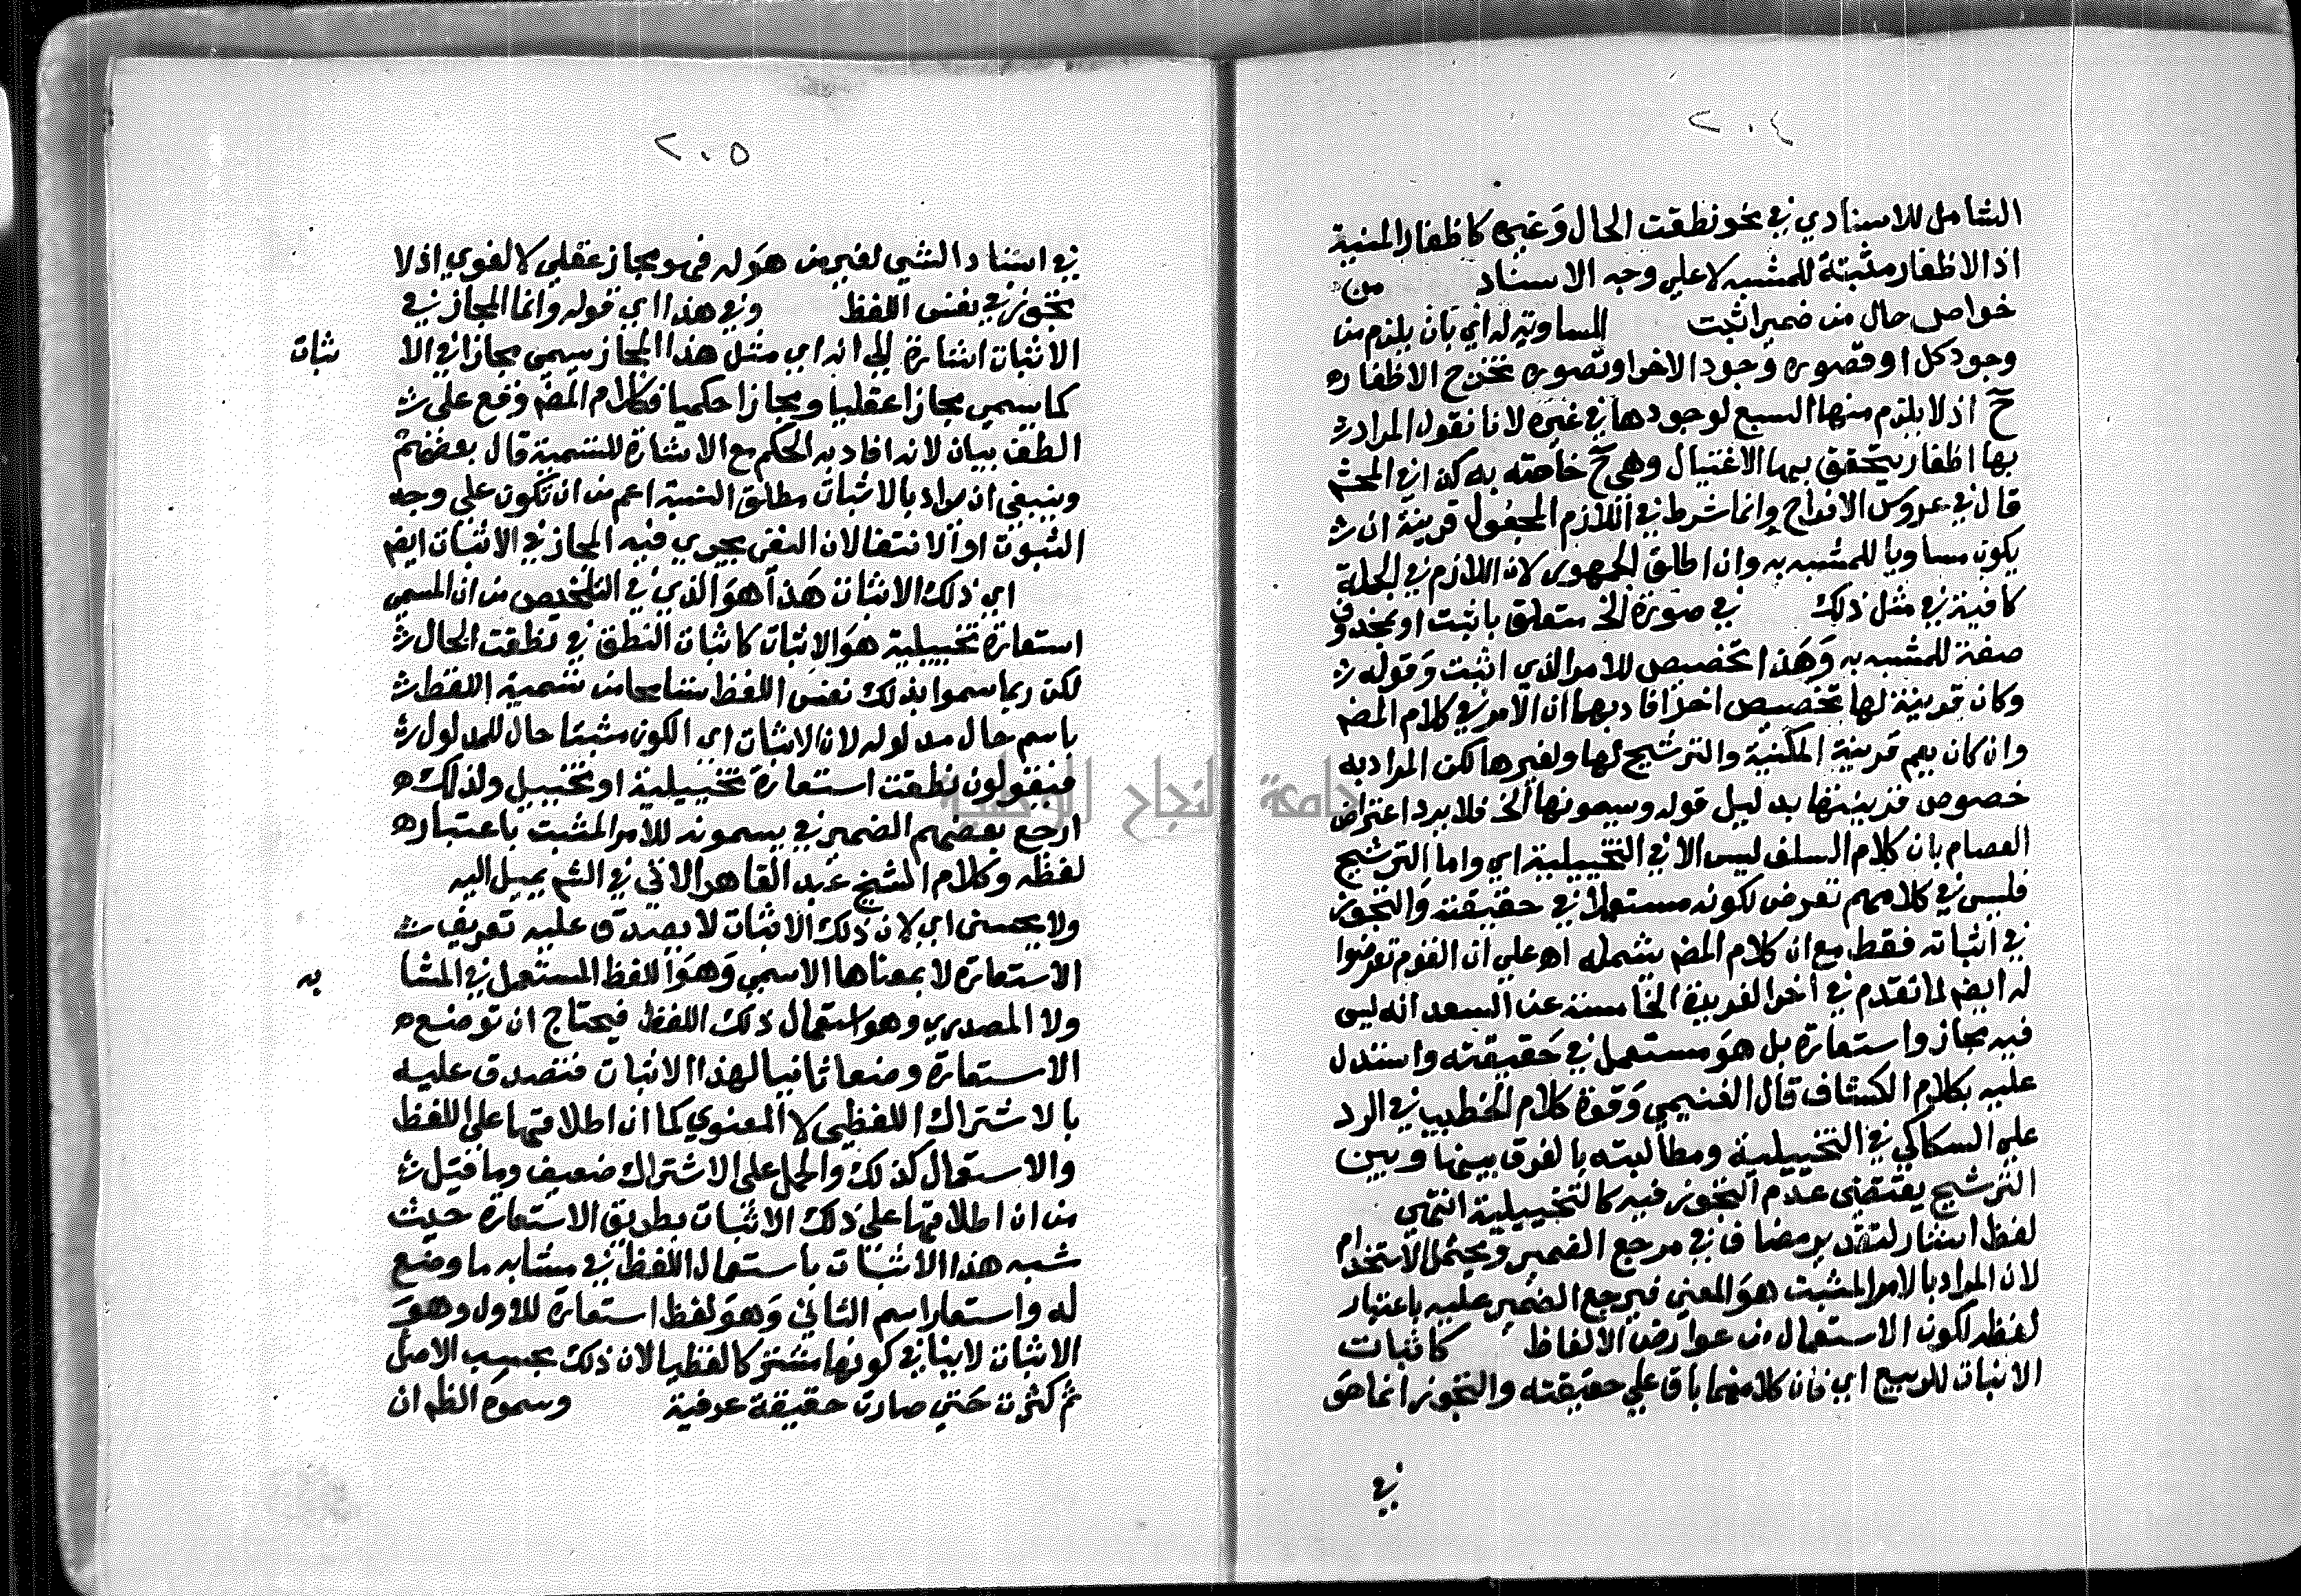 ٢٠٤
الشامل للاسنادي في نحو نطقت الحال وغيره كاظفار المنية
اذ الاظفار مثبتة للمشبه لا على وجه الاسناد من
خواص حال من ضمير اثبت المساوية له اي بان يلزم من
وجود كل او تصوره وجود الاخر او تصوره تخرج الاظفار
ح اذ لا يلزم منها السبع لوجودها في غيره لانا نقول المراد
بها اظفار يتحقق بها الاغتيال وهي ح خاصته به كذا في المحشم
قال في عروس الافراح وانما شرط في اللازم المجعول قرينة ان
يكون مساويا للمشبه به وان اطلق الجمهور لان اللازم في الجملة
كافية في مثل ذلك في صورة الخ متعلق باثبت او بمحذوف
صفة للمشبه به وهذا تخصيص للامر الذي اثبت وقوله
وكان قرينة لها تخصيص اخر افاد بهما ان الامر في كلام المض
وان كان يعم قرينة المكنية والترشيح لها ولغيرها لكن المراد به
خصوص قرينتها بدليل قوله ويسمونها الخ فلا يرد اعتراض
العصام بان كلام السلف ليس الا في التخييلية اي واما الترشيح
فليس في كلامهم تعرض لكونه مستعملا في حقيقته والتجوز
في اثباته فقط مع ان كلام المض يشمله اه على ان القوم تعرضوا
له ايض لما تقدم في اخر الفريدة الخامسة عن السعد انه ليس
فيه مجاز واستعارة بل هو مستعمل في حقيقته واستدل
عليه بكلام الكشاف قال الغنيمي وقوة كلام الخطيب في الرد
على السكاكي في التخييلية ومطالبته بالفرق بينها وبين
الترشيح يقتضي عدم التجوز فيه كالتخييلية انتهى
لفظ اشار لتقدير مضاف في مرجع الضمير ويحتمل الاستخدام
لان المراد بالامر المثبت هو المعنى فيرجع الضمير عليه باعتبار
لفظه لكون الاستعمال من عوارض الالفاظ كاثبات
الانبات للربيع اي فان كلا منهما باق على حقيقته والتجوز انما هو
في
٢٠٥
في اسناد الشي لغير من هو له فهو مجاز عقلي لا لغوي اذ لا
تجوز في نفس اللفظ وفي هذا اي قوله وانما المجاز في
الاثبات اشارة الى انه اي مثل هذا المجاز سيمي مجازا في الا ثبات
كما سيمي مجازا عقليا ومجازا حكميا فكلام المض وقع على
الطف بيان لانه افاد به الحكم مع الاشارة للتسمية قال بعضهم
وينبغي ان يراد بالاثبات مطلق النسبة اعم من ان تكون على وجه
الثبوت او الانتفا لان النفي يجري فيه المجاز في الاثبات ايض
اي ذلك الاثبات هذا هو الذي في التلخيص من ان المسمى
استعارة تخييلية هو الاثبات كاثبات النطق في نطقت الحال
لكن ربما سموا بذلك نفس اللفظ تسامحا من تسمية اللفظ
باسم حال مدلوله لان الاثبات اي الكون مثبتا حال للمدلول
فيقولون نطقت استعارة تخييلية او تخييل ولذلك
ارجع بعضهم الضمير في يسمونه للامر المثبت باعتباره
لفظه وكلام الشيخ عبد القاهر الاتي في الشم يميل اليه
ولا يحسن اي لان ذلك الاثبات لا يصدق عليه تعريف
الاستعارة لا بمعناها الاسمي وهو اللفظ المستعمل في المشا به
ولا المصدري وهو استعمال ذلك اللفظ فيحتاج ان توضع
الاستعارة وضعا ثانيا لهذا الاثبات فتصدق عليه
بالاشتراك اللفظي لا المعنوي كما ان اطلاقها على اللفظ
والاستعمال كذلك والحمل على الاشتراك ضعيف وما قيل
من ان اطلاقها على ذلك الاثبات بطريق الاستعارة حيث
شبه هذا الاثبات باستعمال اللفظ في مشابه ما وضع
له واستعار اسم الثاني وهو لفظ استعارة للاول وهو
الاثبات لا ينافي كونها مشتركا لفظيا لان ذلك بحسب الاصل
ثم كثرت حتى صارت حقيقة عرفية وسموه الظم ان
جامعة النجاح الوطنية